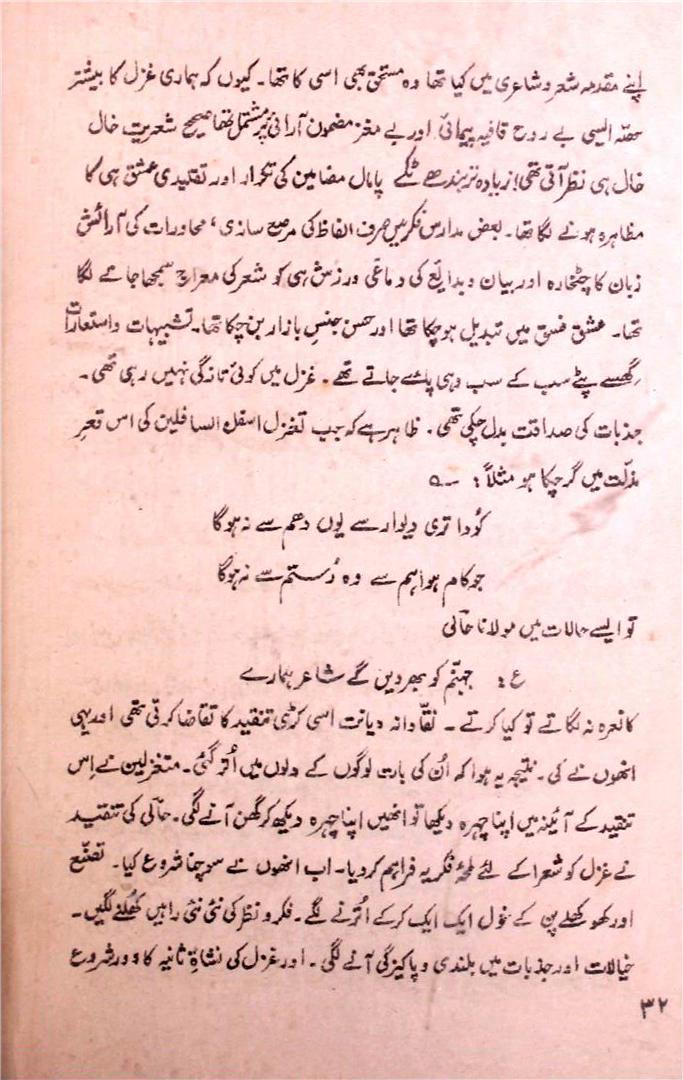 اپنے مقدمہ شعر و شاعری میں کیا تھا وہ مستحق بھی اسی کا تھا۔ کیوں کہ ہماری غزل کا بیشتر
حصّہ ایسی بے روح قافیہ پیمائی اور بے مغز مضمون آرائی پر مشتمل تھا صحیح شعریت خال
خال ہی نظر آتی تھی! زیادہ تر بندھے ٹکے پامال مضامین کی تکرار اور تقلیدی عشق ہی کا
مظاہرہ ہونے لگا تھا۔ بعض مدارس فکر میں صرف الفاظ کی مرصع سازی، محاورات کی آرائش
زبان کا چٹخارہ اور بیان و بدایع کی دماغی ورزش ہی کو شعر کی معراج سمجھا جانے لگا
تھا۔ عشق فسق میں تبدیل ہو چکا تھا اور حسن جنسِ بازار بن چکا تھا۔ تشبیہات و استعارات
گھسے پٹے سب کے سب وہی پائے جاتے تھے۔ غزل میں کوئی تازگی نہیں رہی تھی۔
جذبات کی صداقت بدل چکی تھی۔ ظاہر ہے کہ جب تغزل اسفل السافلین کی اس قعرِ
مذلّت میں گر چکا ہو مثلاً: ؎
کُودا تری دیوار سے یوں دھم سے نہ ہوگا
جو کام ہوا ہم سے وہ رُستم سے نہ ہوگا
تو ایسے حالات میں مولانا حالی
ع: جہنّم کو بھر دیں گے شاعر ہمارے
کا نعرہ نہ لگاتے تو کیا کرتے۔ نقّادانہ دیانت اسی کڑی تنقید کا تقاضا کرتی تھی اور یہی
انھوں نے کی۔ نتیجہ یہ ہوا کہ اُن کی بات لوگوں کے دلوں میں اُتر گئی۔ متغزلین نے اس
تنقید کے آئینہ میں اپنا چہرہ دیکھا تو انھیں اپنا چہرہ دیکھ کر گھن آنے لگی۔ حالی کی تنقید
نے غزل گو شعرا کے لئے لمحۂ فکریہ فراہم کر دیا۔ اب انھوں نے سوچنا شروع کیا۔ تصنّع
اور کھوکھلے پن کے خول ایک ایک کرکے اُترنے لگے۔ فکر و نظر کی نئی نئی راہیں کھُلنے لگیں۔
خیالات اور جذبات میں بلندی و پاکیزگی آنے لگی۔ اور غزل کی نشاۃِ ثانیہ کا دور شروع
۳۲